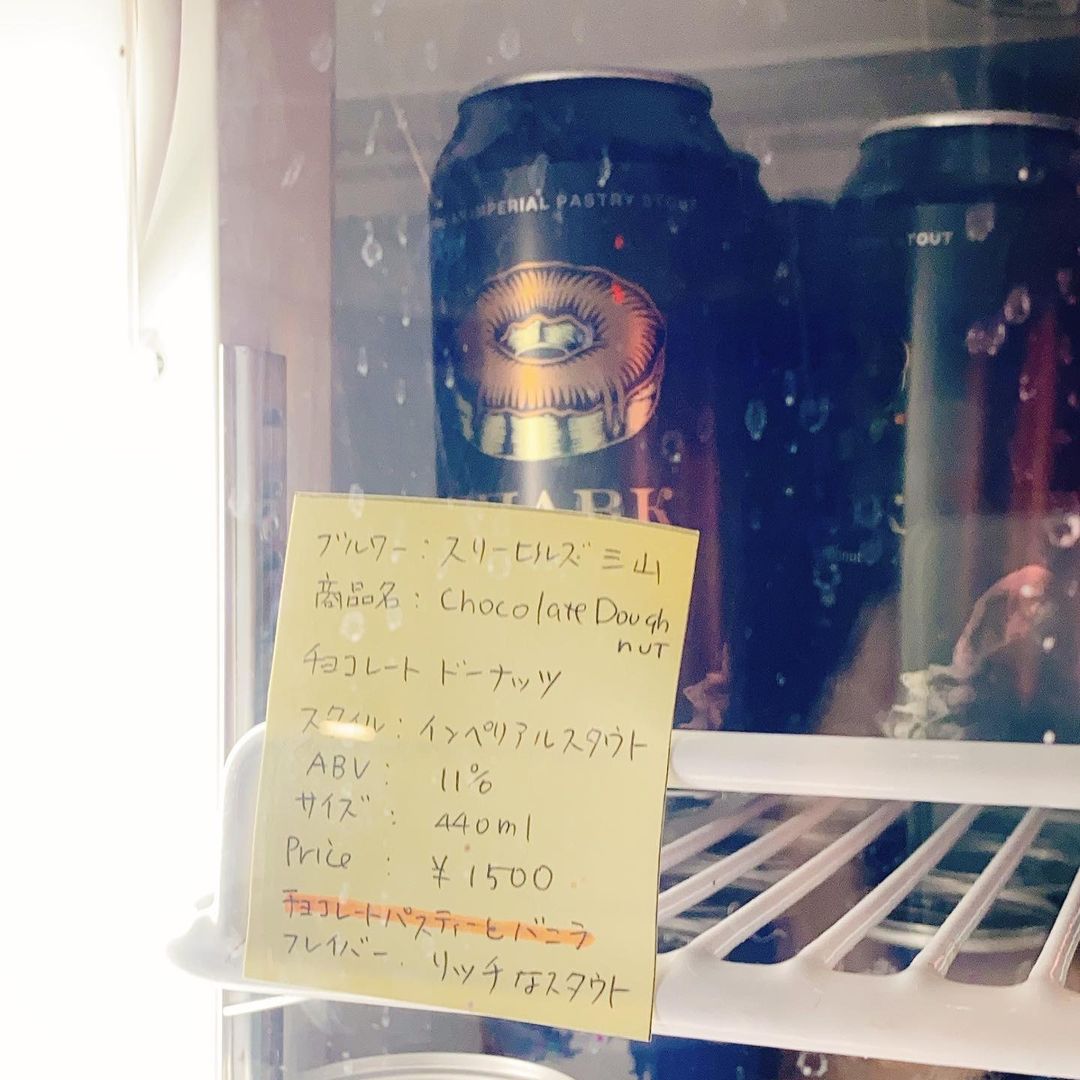 IMPERIAL PASTRY STOUT
TOUT
ブルワー：スリーヒルズ 三山
商品名：Chocolate Dough
nut
チョコレート ドーナッツ
スタイル：インペリアルスタウト
ABV： 11%
サイズ： 440ml
Price： ¥1500
チョコレートパスティーとバニラ
フレイバー. リッチなスタウト